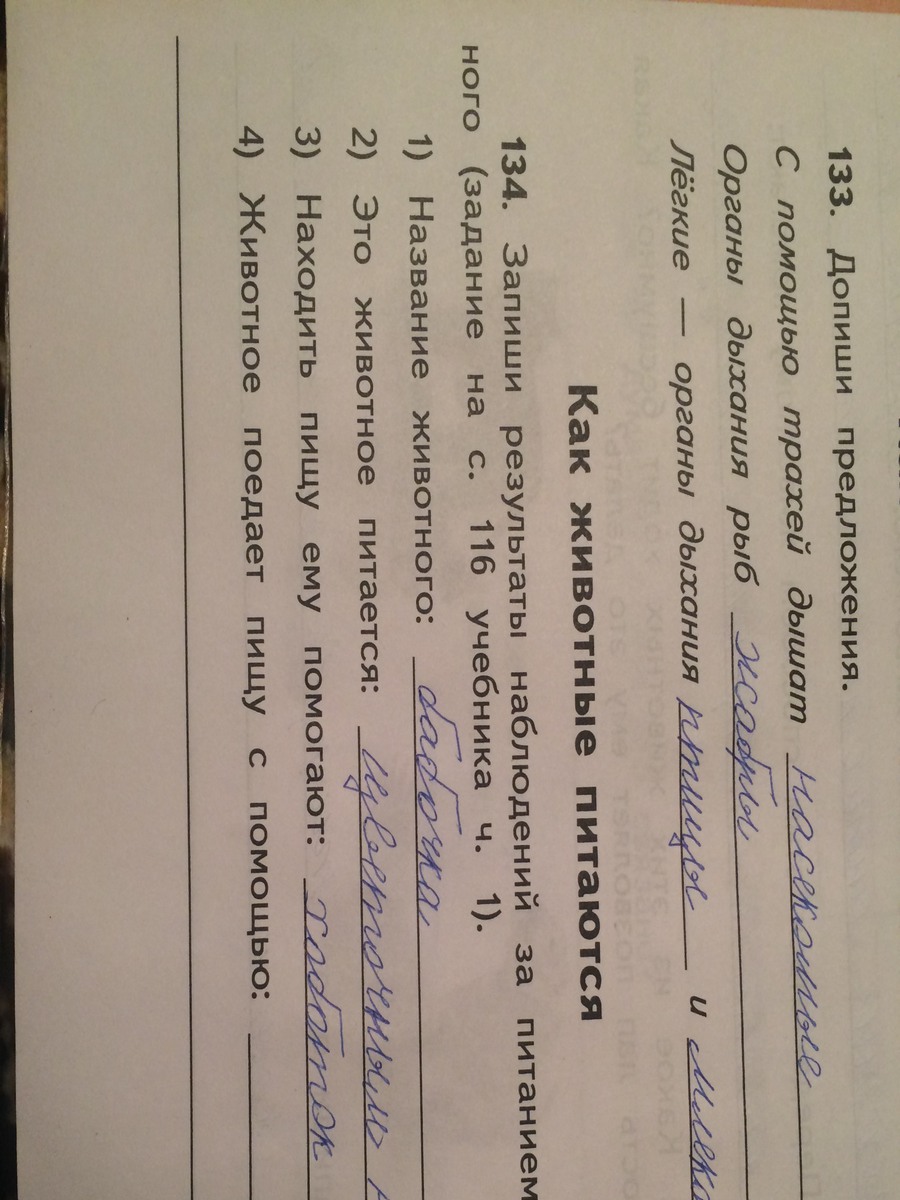 133. Допиши предложения.
С помощью трахей дышат насекомые
Органы дыхания рыб жабры
Лёгкие — органы дыхания птицы и млеко
Как животные питаются
134. Запиши результаты наблюдений за питанием
ного (задание на с. 116 учебника ч. 1).
1) Название животного: бабочка
2) Это животное питается: цветочным
3) Находить пищу ему помогают: хоботок
4) Животное поедает пищу с помощью: